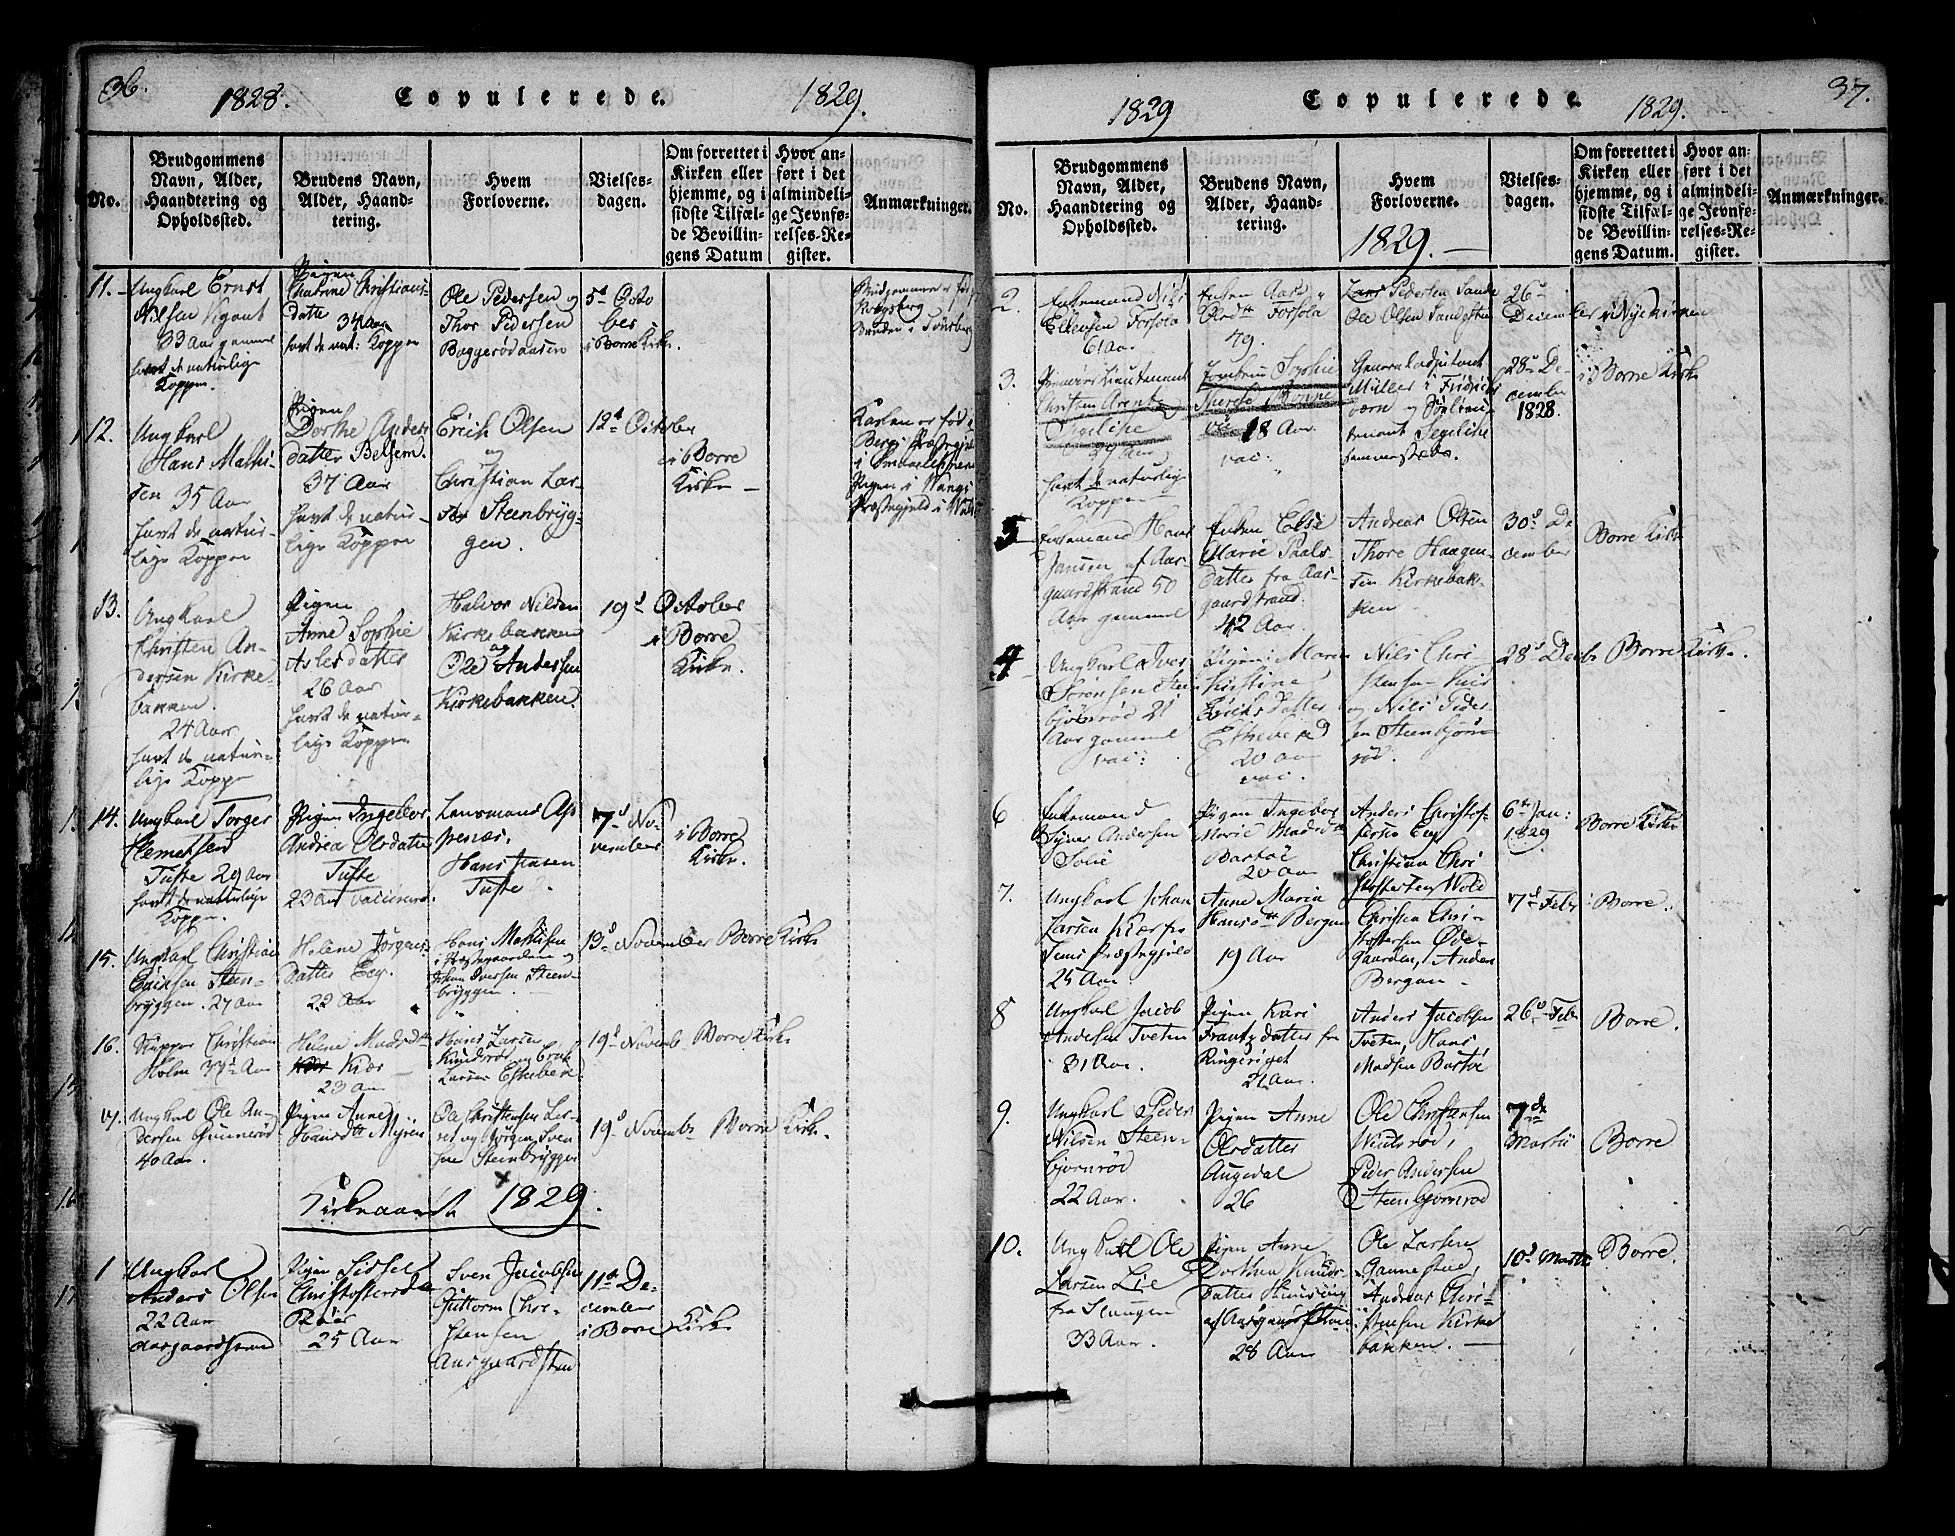 36.
1828.
Copulerede.
1829.
No.
Brudgommens
Navn, Alder,
Haandtering og
Opholdssted.
Brudens Navn,
Alder, Haand-
tering.
Hvem
Forloverne.
Vielses-
dagen.
Om forrettet i
Kirken eller
hjemme, og i
sidste Tilfæl-
de Bevillin-
gens Datum
Hvor an-
ført i det
almindeli-
ge Jevnfø-
relses-Re-
gister.
Anmærkninger.
11.
Ungkarl Ernst
Nilsen
33 Aar gammel
havt de naturlige
Kopper.
Pigen
Christians-
datter
34 Aar
havt de nat: Kopper
Ole Pedersen og
Thor Pedersen
Baggerødaasen
5te Octo
ber
i Borre Kirke.
Brudgommen er født
Kongsberg
Bruden i Tønsberg
12.
Ungkarl
Hans Mathi-
sen 35 Aar
havt de natur-
lige Kopper
Pigen
Dorthe Anders
datter
37 Aar
havt de natur-
lige Kopper
Erich Olsen
og
Christian Lar-
sen Steenbryg-
gen.
12te October
i Borre
Kirke
Karlen er fød i
Præstegjeld
i Smaalehnene
Pigen i Vangs
Præstegjeld i
13.
Ungkarl
Christen An-
dersen Kirke-
bakken.
24 Aar
havt de natur-
lige Kopper
Pigen
Anne Sophie
Aslesdatter
26 Aar
havt de natur-
lige Kopper
Halvor Nilsen
Kirkebakken
og
Ole Andersen
Kirkebakken.
19d October
i Borre
Kirke.
14.
Ungkarl Torger
Clemetsen
Tufte 29 Aar
havt de naturlige
Kopper.
Pigen Ingebor
Andrea Olsdatter
Tufte
23 Aar vaccinered.
Lensmand As
penæs.
Hans Jensen
Tufte.
7d No-
vember
i Borre
Kirke.
15.
Ungkarl Christian
Ericksen Steen-
bryggen. 27 Aar
Helene Jørgens
Datter Eeg.
22 Aar
Hans Mathisen
i Præstegaarden og
Johan Iversen Steen-
bryggen.
13d November Borre Kirke
16.
Christian
Holm 34 Aar
Helene Madsdtr
Kiær
23 Aar
Hans Larsen
Knudsrød og Erak
Larsen Eskebek
19d Novemb Borre Kirke
17.
Ungkarl Ole An-
dersen Gunnerød
40 Aar.
Pigen Anne
Hansdtr Myren
Ole Christensen
og Jørgen Sven
sen Steenbryggen
19d Novemb Borre Kirke.
Kirkeaaret 1829.
1
Ungkarl
Anders Olsen
22 Aar
Aasgaardstrand
Pigen Sidsel
Christofersdtr
Røer
25 Aar
Sven Jacobsen
Guttorm Chri-
stensen
Aasgaardsten
11te De-
cember
i Borre Kirke
1829
Copulerede.
1829.
37.
No.
Brudgommens
Navn, Alder,
Haandtering og
Opholdssted.
Brudens Navn,
Alder, Haand-
tering.
Hvem
Forloverne.
1829.
Vielses-
dagen.
Om forrettet i
Kirken eller
hjemme, og i
sidste Tilfæl-
de Bevillin-
gens Datum.
Hvor an-
ført i det
almindeli-
ge Jevnfø-
relses-Re-
gister.
Anmærkninger.
2.
Enkemand Nils
Ellevsen Forsola
61 Aar
Enken Aase
Olsdtr Forsola
49.
Lars Pedersen Sande
Ole Olsen
26de
December i Nykirken
3.
Premier Lieutenant
Christen Arentz
Segelcke
34 Aar
havt de naturlig
Kopper
Jomfrue Sophie
Therese Bonne
18 Aar
vac:
General adjutant
Müller i Fridrichs
værn og Søelieu
tenant Segelcke
sammesteds.
28de De-
cember
1828.
i Borre Kirke
5
Enkemand Hans
Jansen af Aas-
gaardstrand 50
Aar gammel
Enken Else
Marie Paals-
datter fra Aas-
gaardstrand.
42 Aar.
Andreas Olsen
Thore Haagen-
sen Kirkebak-
ken
30d De
cember
Borre Kirke
4
Ungkarl Iver
Sørensen Steen
bjønrød 21
Aar gammel
vac:
Pigen Maren
Kirstine
Ericks Datter
Eskebek
20 Aar
vac.
Nils Chri
stensen
og Nils Peder
sen Steenbjøn
rød.
28d Decb Borre Kirke.
6
Enkemand
Andersen
Solie
Pigen Ingeborg
Marie Madsdtr
Bastøe
20 Aar
Anders Christof-
fersen Eeg
Christian Chri
stoffersen Wold
6te Jan:
1829
Borre Kirke
7.
Ungkarl Johan
Larsen Kiær fra
Sems Præstegjeld
25 Aar
Anne Maria
Hansdtr Bergan
19 Aar
Christen Chri-
stoffersen Øde-
gaarden, Anders
Bergan
7d Febr
Borre.
8
Ungkarl Jacob
Andersen Tveten
31 Aar.
Pigen Kari
Frantzdatter fra
Ringeriget
21 Aar.
Anders Jacobsen
Tveten, Hans
Madsen Bastøe
26d Febr
Borre.
9.
Ungkarl Peder
Nilsen Steen-
bjørnrød
22 Aar.
Pigen Anne
Olsdatter
Augedal
26
Ole Christensen
rød,
Peder Andersen
Steenbjørnrød
7de
Martii
Borre
10.
Ungkarl Ole
Larsen Lie
fra Slaugen
33 Aar.
Pigen Anne
Dorthea Knuds-
Datter
af Aasgaardstrand
28 Aar
Ole Larsen
Gannestad,
Andreas Chri-
stensen Kirke
bakken.
10d Martii
Borre.